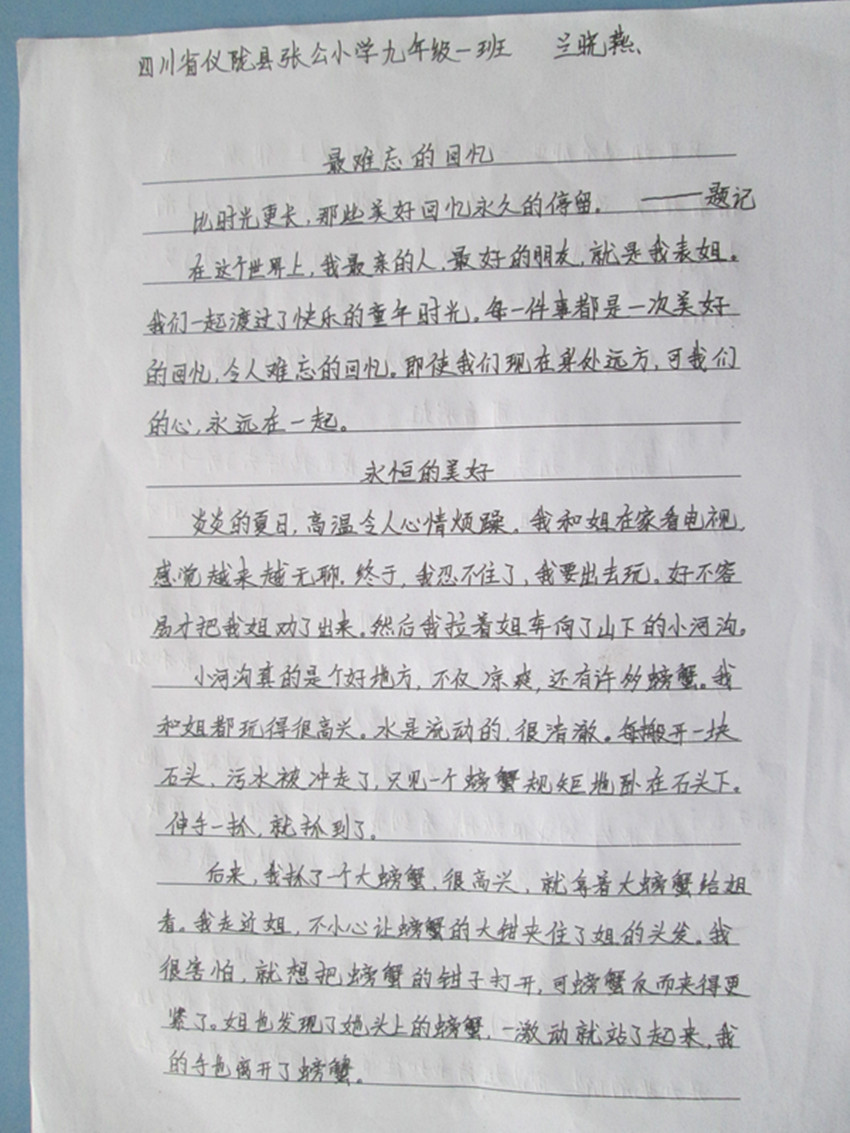 四川省仪陇县张公小学九年级一班 兰晓燕
最难忘的回忆
比时光更长，那些美好回忆永久的停留。 ——题记
在这个世界上，我最亲的人，最好的朋友，就是我表姐。
我们一起渡过了快乐的童年时光。每一件事都是一次美好
的回忆，令人难忘的回忆。即使我们现在身处远方，可我们
的心，永远在一起。
永恒的美好
炎炎的夏日，高温令人心情烦躁。我和姐在家看电视，
感觉越来越无聊。终于，我忍不住了，我要出去玩。好不容
易才把我姐劝了出来。然后我拉着姐奔向了山下的小河沟。
小河沟真的是个好地方，不仅凉爽，还有许多螃蟹。我
和姐都玩得很高兴。水是流动的，很清澈。每搬开一块
石头，污水被冲走了，只见一个螃蟹规矩地卧在石头下。
伸手一抓，就抓到了。
后来，我抓了一个大螃蟹，很高兴，就拿着大螃蟹给姐
看。我走近姐，不小心让螃蟹的大钳夹住了姐的头发。我
很害怕，就想把螃蟹的钳子打开，可螃蟹反而夹得更
紧了。姐也发现了她头上的螃蟹，一激动就站了起来，我
的手也离开了螃蟹。